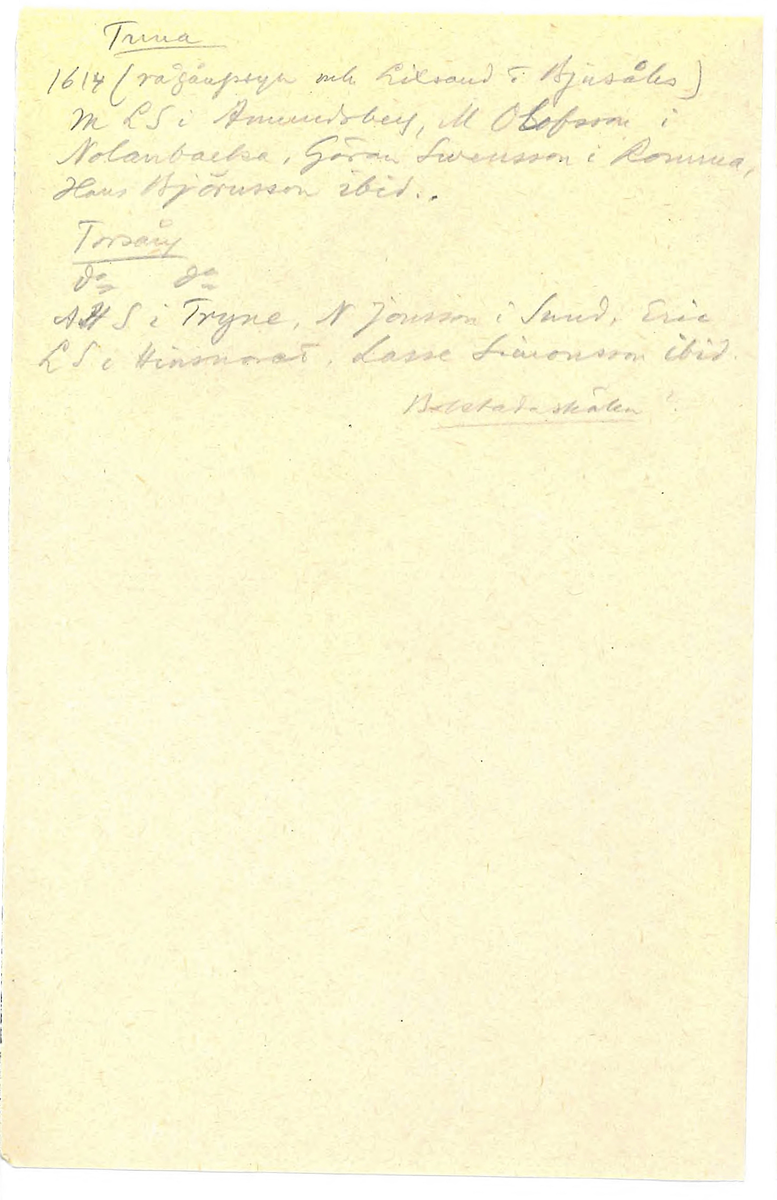 Tuna
1614 (rågångssyn Lilsand i Bjursåks)
M LS i Amundsberg, M Olofsson i
Nolanbacka, Göran Swensson i Romma,
Hans Björnsson ibid..
Torsång
do do
AHS i Tryne, N Jonsson i Sund, Eric
LS i Hinsnoret, Lasse Simonsson ibid.
Bolstadaskålen ?